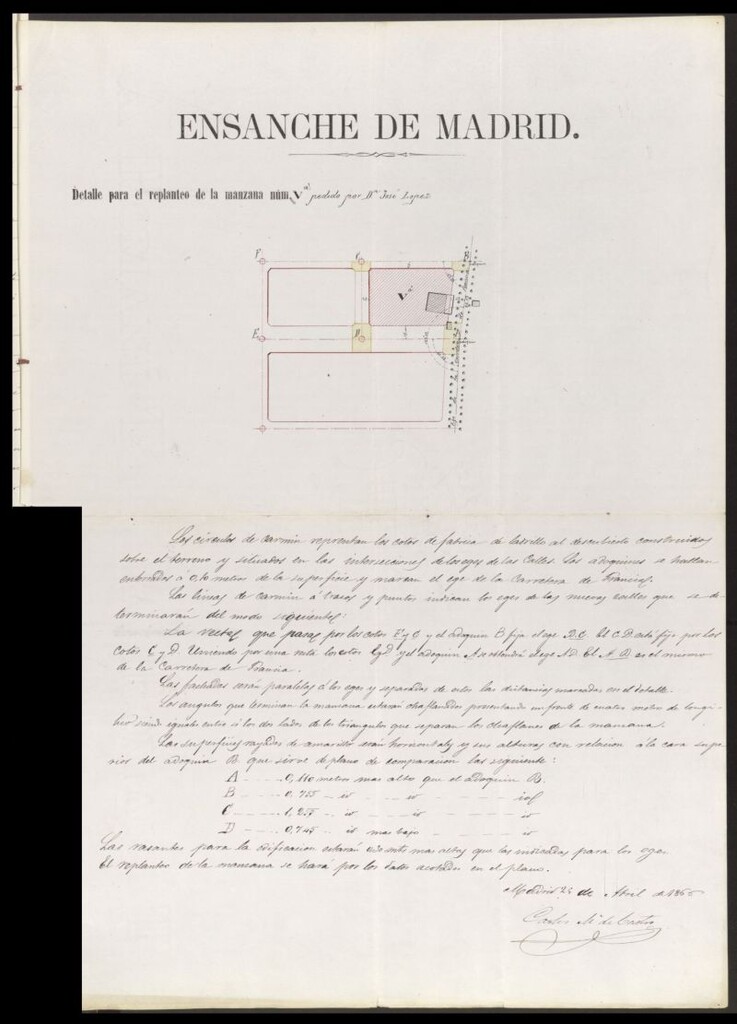 ENSANCHE DE MADRID.
Detalle para el replanteo de la manzana núm. Vª pedido por Dn José Lopez
F C
Vª
E D
Los circulos de carmin representan los cotos de fabrica de ladrillo al descubierto construidos
sobre el terreno y situados en las intersecciones de los eges de las Calles. Los adoquines se hallan
enterrados á 0,10 metros de la superficie y marcan el ege de la Carretera de Francia.
Las lineas de carmin á trazos y puntos indican los eges de las nuevas calles que se de-
terminarán del modo siguiente:
La recta que pasa por los cotos F y C y el adoquin B fija el ege B.C. El C.D. está fijo por los
cotos C y D. Uniendo por una recta los cotos E y D y el adoquin A se obtendrá el ege A.D. El A.B. es el mismo
de la Carretera de Francia.
Las fachadas serán paralelas á los eges y separadas de estos las distancias marcadas en el detalle.
Los angulos que terminan la manzana estarán chaflanados presentando un frente de cuatro metros de longi-
tud siendo iguales entre si los dos lados de los triangulos que separan los chaflanes de la manzana.
Las superficies rayadas de amarillo serán horizontales y sus alturas con relacion á la cara supe-
rior del adoquin B que sirve de plano de comparacion las siguientes:
A - - - - 0,110 metros mas alto que el adoquin B.
B - - - - 0,755 - id - - - id - - - - id
C - - - - 1,255 - id - - - id - - - - id
D - - - - 0,745 - id mas bajo - - - - id
Las rasantes para la edificacion estarán mas altas que las indicadas para los eges.
El replanteo de la manzana se hará por los datos acotados en el plano.
Madrid 25 de Abril de 1865
Carlos Mª de Castro